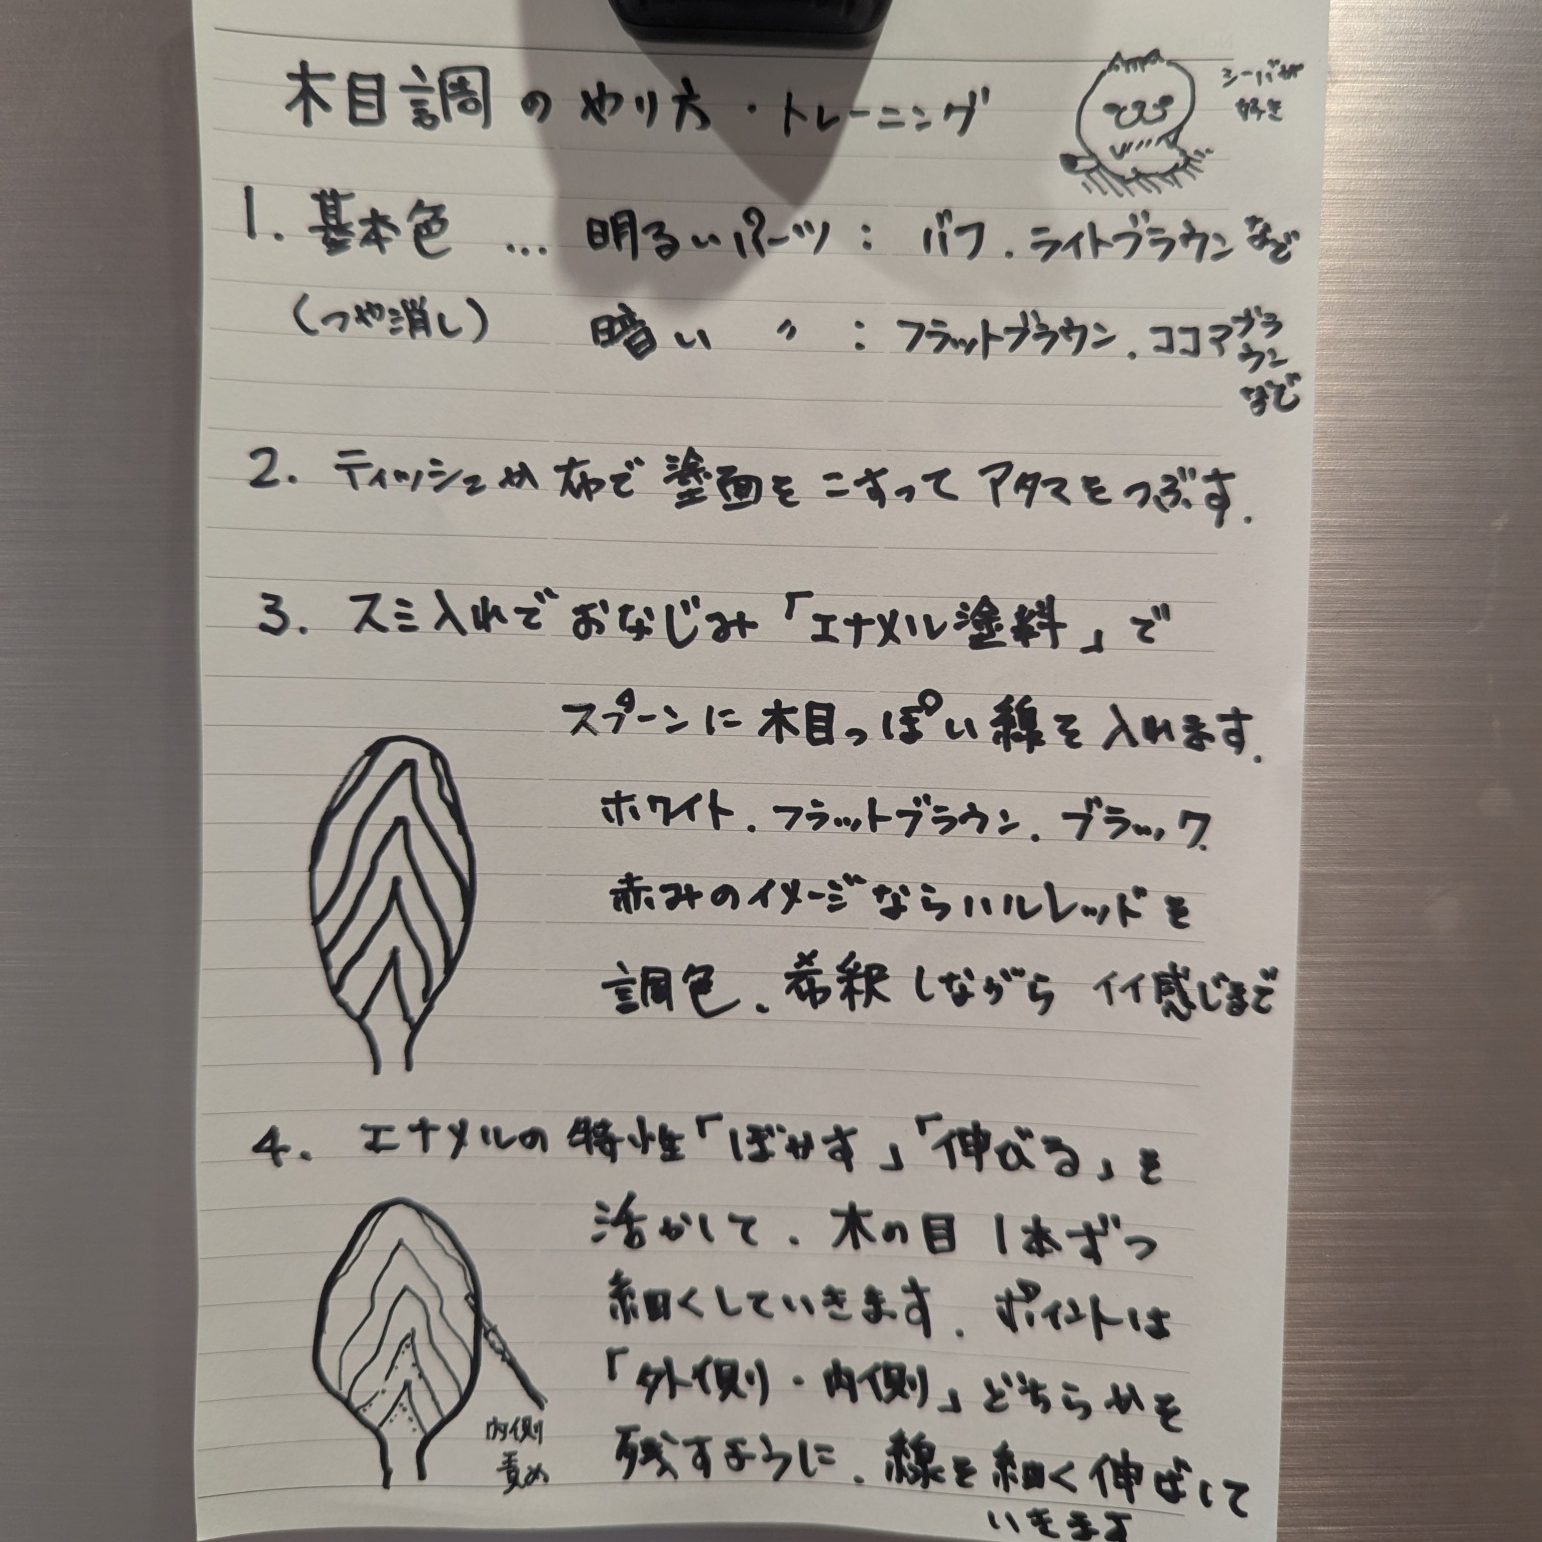 木目調のやり方・トレーニング
シーバが
好き
1. 基本色 … 明るいパーツ : バフ.ライトブラウンなど
(つや消し) 暗い 〃 : フラットブラウン.ココアブラウンなど
2. ティッシュか布で塗面をこすってアタマをつぶす.
3. スミ入れでおなじみ「エナメル塗料」で
スプーンに木目っぽい線を入れます.
ホワイト.フラットブラウン.ブラック.
赤みのイメージならハルレッドを
調色.希釈しながらイイ感じまで
4. エナメルの特性「ぼかす」「伸びる」を
活かして.木の目1本ずつ
細くしていきます.ポイントは
「外側・内側」どちらかを
残すように.線を細く伸ばして
いきます
内側
責め